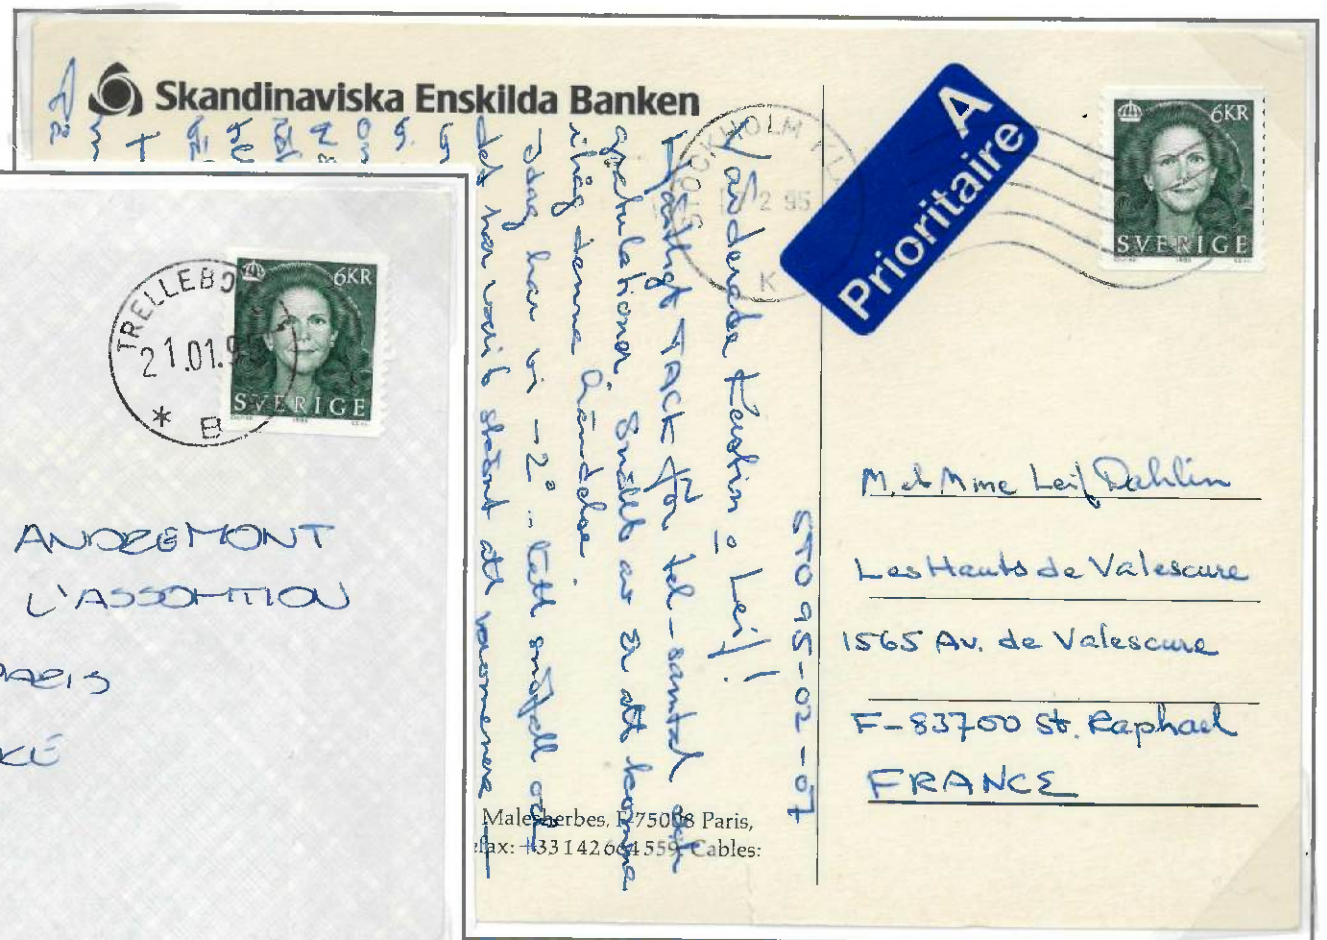 Skandinaviska Enskilda Banken
STOCKHOLM
2 95
K
A
Prioritaire
6KR
SVERIGE
STO 95-02-07
Värderade Kerstin o Leif!
Hjärtligt TACK för tel-samtal och
gratulationer. Snällt av Er att komma
ihåg denna händelse.
Idag har vi -2° .. lätt snöfall och
det har varit skönt att
M. et Mme Leif Dahlin
Les Hauts de Valescure
1565 Av. de Valescure
F-83700 St. Raphael
FRANCE
Malesherbes, F-75008 Paris,
fax: +33142664559, Cables:
TRELLEBO
21.01.95
* B
6KR
SVERIGE
ANDREMONT
L'ASSOMTION
PARIS